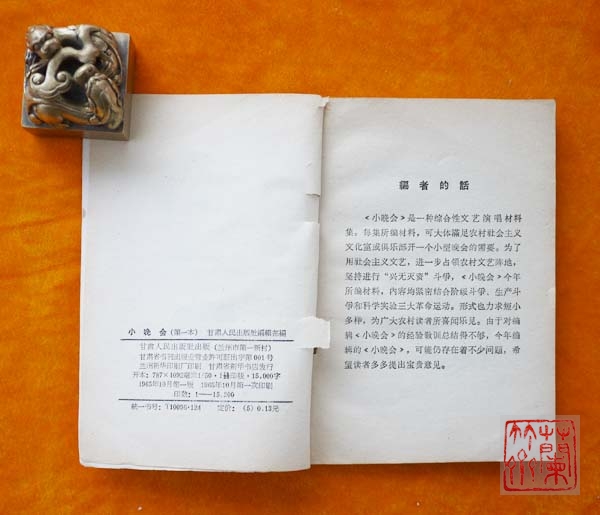 小 晚 会（第一本） 甘肃人民出版社編輯部編
甘肃人民出版社出版（兰州市第一新村）
甘肃省书刊出版业营业許可証出字第001号
兰州新华印刷厂印刷 甘肃省新华书店发行
开本：787×1092毫米1/50・1印张・15,000字
1965年10月第一版 1965年10月第一次印刷
印数：1——15,200
統一书号：T10096・124 定价：（5）0.13元
編 者 的 話
《小晚会》是一种綜合性文艺演唱材料
集。每集所編材料，可大体滿足农村社会主义
文化室或俱乐部开一个小型晚会的需要。为了
用社会主义文艺，进一步占領农村文艺陣地，
坚持进行“兴无灭資”斗爭，《小晚会》今年
所編材料，内容均紧密結合阶級斗爭、生产斗
爭和科学实驗三大革命运动。形式也力求短小
多样，为广大农村讀者所喜聞乐見。由于对編
輯《小晚会》的经驗教训总結得不够，今年編
輯的《小晚会》，可能仍存在着不少問題，希
望讀者多多提出宝貴意見。
蘭
竹